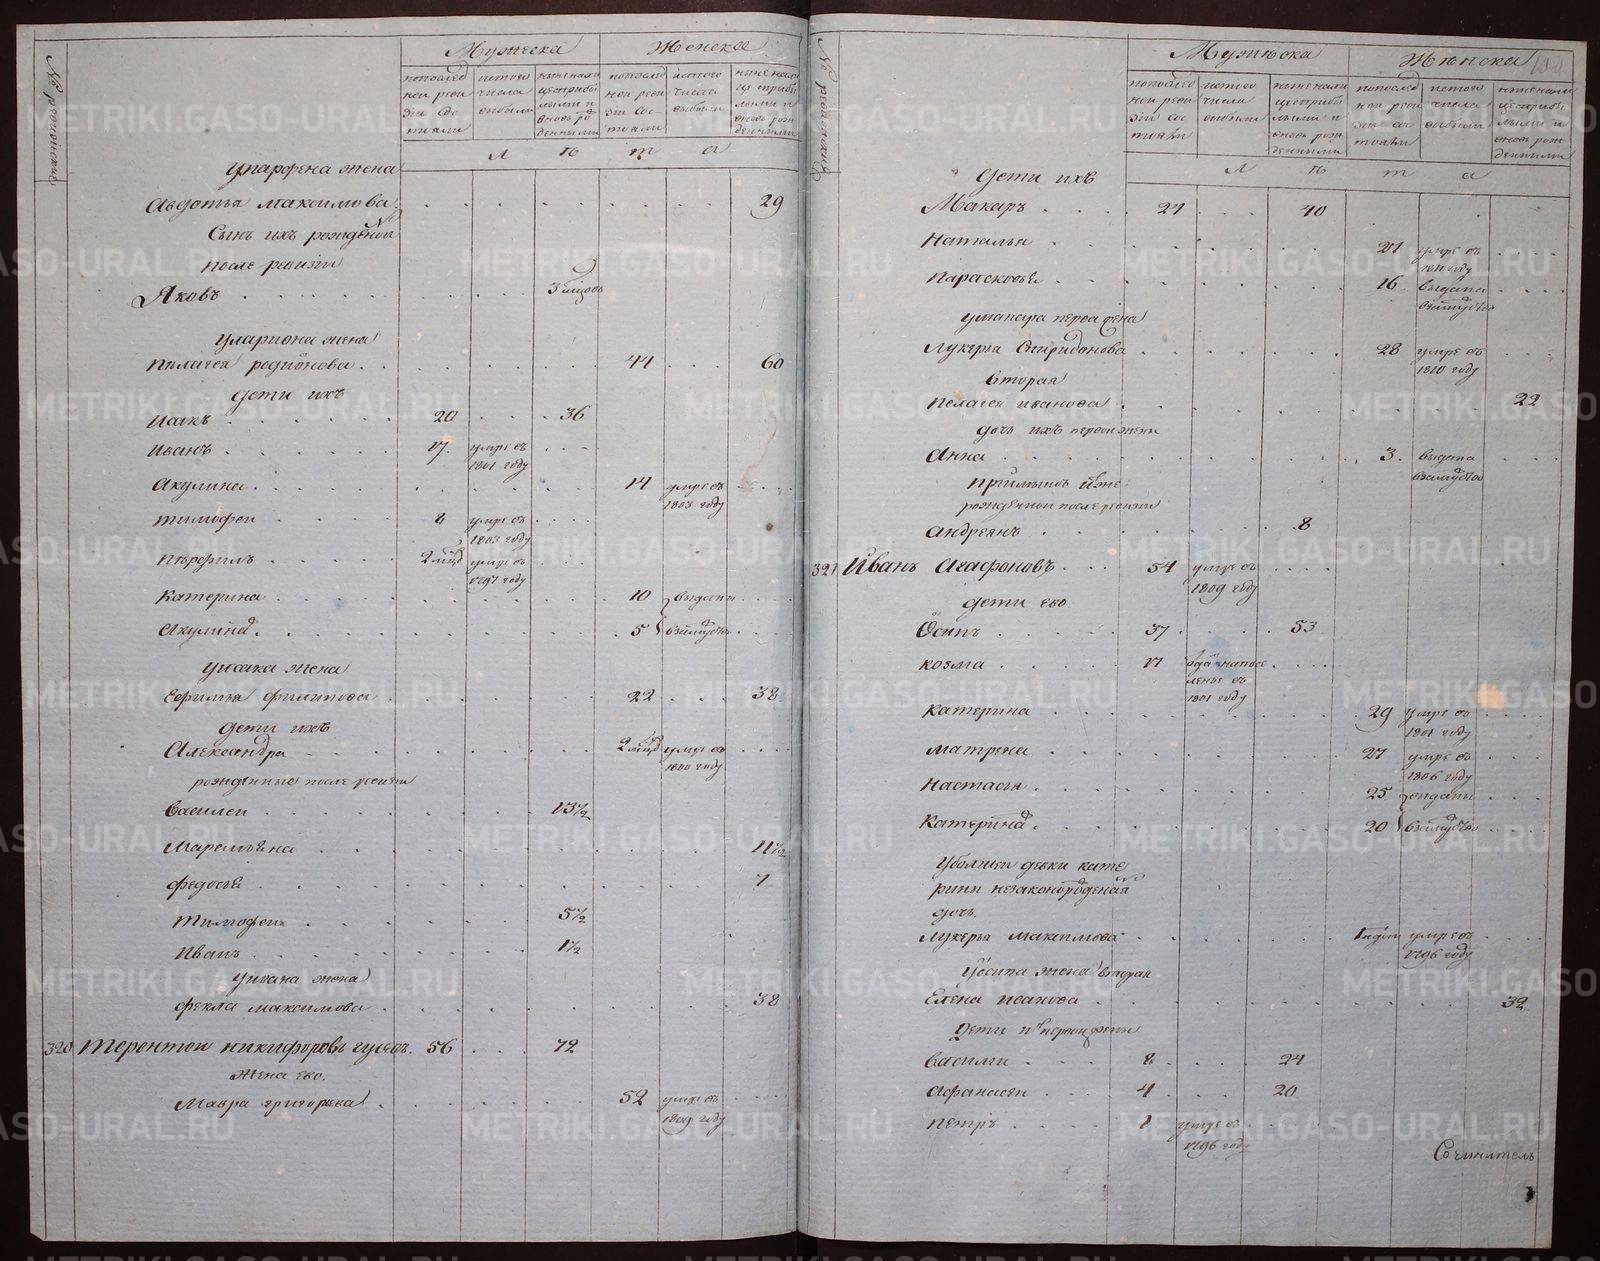 Мужеска Женска
№ ревизские
по последней ревизии состояли
из того числа выбыли
ныне на лицо с прибылыми и вновь рожденными
по последней ревизии состояли
из того числа выбыли
ныне на лицо с прибылыми и вновь рожденными
л ѣ т а
у парфена жена
Авдотья максимова 29
Сынъ ихъ рожденой
после ревизiи
Яковъ 3 мцовъ
у лариона жена
пилагея родiонова 44 60
дети ихъ
Исакъ 20 36
Иванъ 17 умре въ 1801 году
Акулина 14 умре въ 1803 году
тимофеи 8 умре въ 1803 году
перфилъ 2 мцд умре въ 1797 году
катерина 10 выданы
Акулина 5 взамужство
у исака жена
Ефимья филипова 22 38
дети ихъ
Александра 2 мцд умре въ 1800 году
рожденные после ревизiи
василеи 13½
Маремьяна 11½
федосья 7
тимофеи 5½
Иванъ 1½
у ивана жена
фекла максимова 38
320 терентеи никифоровъ гусевъ 56 72
жена ево
Мавра григорьева 52 умре въ 1809 году
Мужеска Женска
№ ревизские
по последней ревизии состояли
из того числа выбыли
ныне на лицо с прибылыми и вновь рожденными
по последней ревизии состояли
из того числа выбыли
ныне на лицо с прибылыми и вновь рожденными
л ѣ т а
дети ихъ
Макаръ 24 40
Наталья 21 умре въ году
Парасковья 16 выдана взамужство
у макара перва жена
Лукерья Спиридонова 28 умре въ 1810 году
вторая
пелагея иванова 22
дочь ихъ первои жены
Анна 3 выдана взамужство
рожденнои после ревизiи
Андреянъ 8
321 Иванъ Агафоновъ 54 умре въ 1809 году
дети ево
Осипъ 37 53
козма 17 въ 1801 году
катерина 29 умре въ 1801 году
матрена 27 умре въ 1806 году
Настасья 25 выданы
катерина 20 взамужство
у болшеи девки кате
рины незаконорожденая
дочь
Лукерья максимова умре въ 1796 году
у осипа жена вторая
Елена исакова 32
дети первои жены
василеи 8 24
афанасеи 4 20
петръ 1 умре въ 1796 году
Сочинитель
METRIKI.GASO-URAL.RU